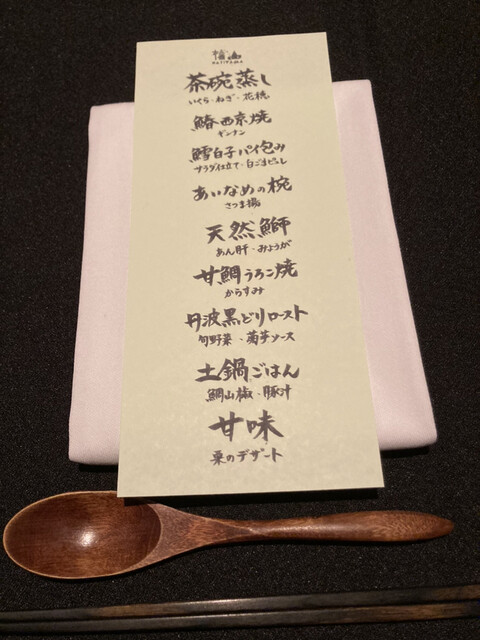 茶碗蒸し
いくら・ねぎ・花穂
鰆西京焼
ギンナン
鱈白子パイ包み
サラダ仕立て・白ごまピューレ
あいなめの椀
さつま揚
天然鰤
あん肝・みょうが
甘鯛うろこ焼
からすみ
丹波黒どりロースト
旬野菜・菊芋ソース
土鍋ごはん
鯛山椒・豚汁
甘味
栗のデザート